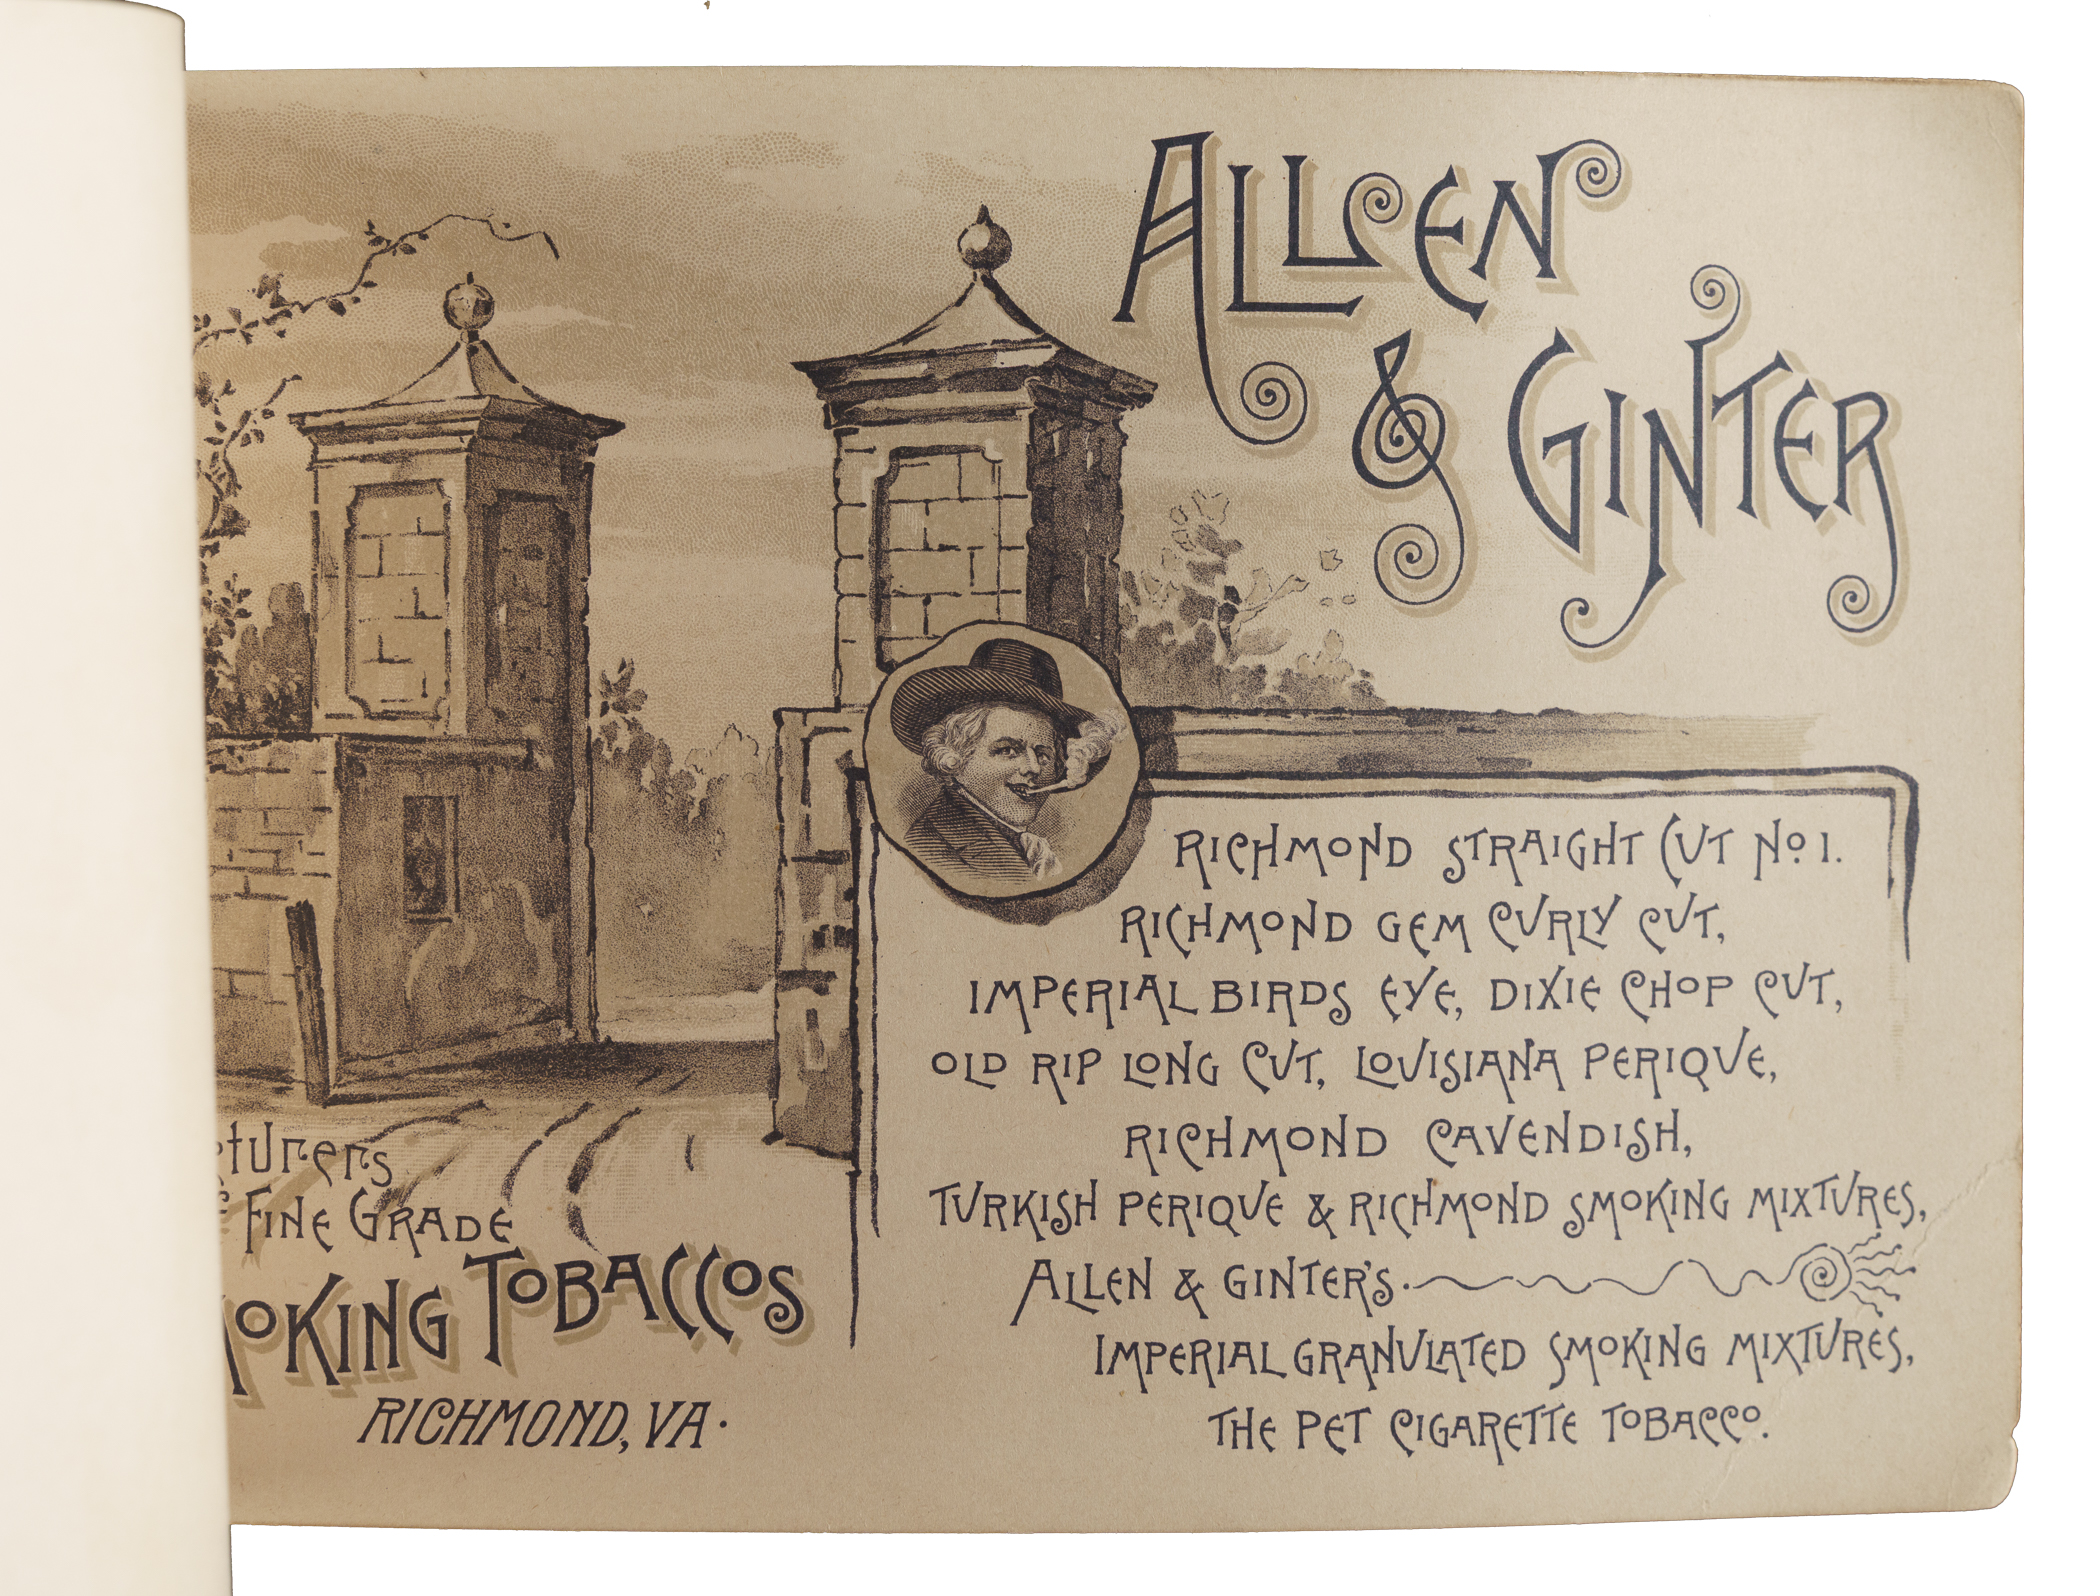 ALLEN
& GINTER
RICHMOND STRAIGHT CUT No 1.
RICHMOND GEM CURLY CUT,
IMPERIAL BIRDS EYE, DIXIE CHOP CUT,
OLD RIP LONG CUT, LOUISIANA PERIQUE,
RICHMOND CAVENDISH,
TURKISH PERIQUE & RICHMOND SMOKING MIXTURES,
ALLEN & GINTER'S.
IMPERIAL GRANULATED SMOKING MIXTURES,
THE PET CIGARETTE TOBACCO.
cturers
FINE GRADE
OKING TOBACCOS
RICHMOND, VA.